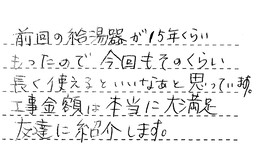 前回の給湯器が15年くらい
もったので今回もそのくらい
長く使えるといいなあと思っています。
工事金額は本当に大満足
友達に紹介します。